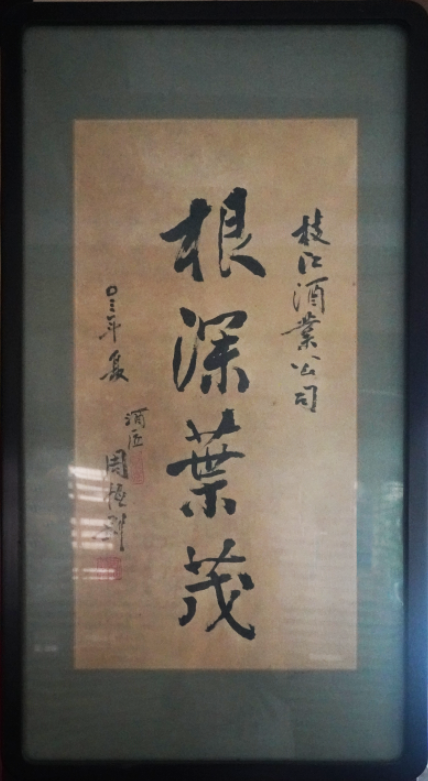 枝江酒業公司
根深葉茂
〇三年夏
酒匠
周恒刚